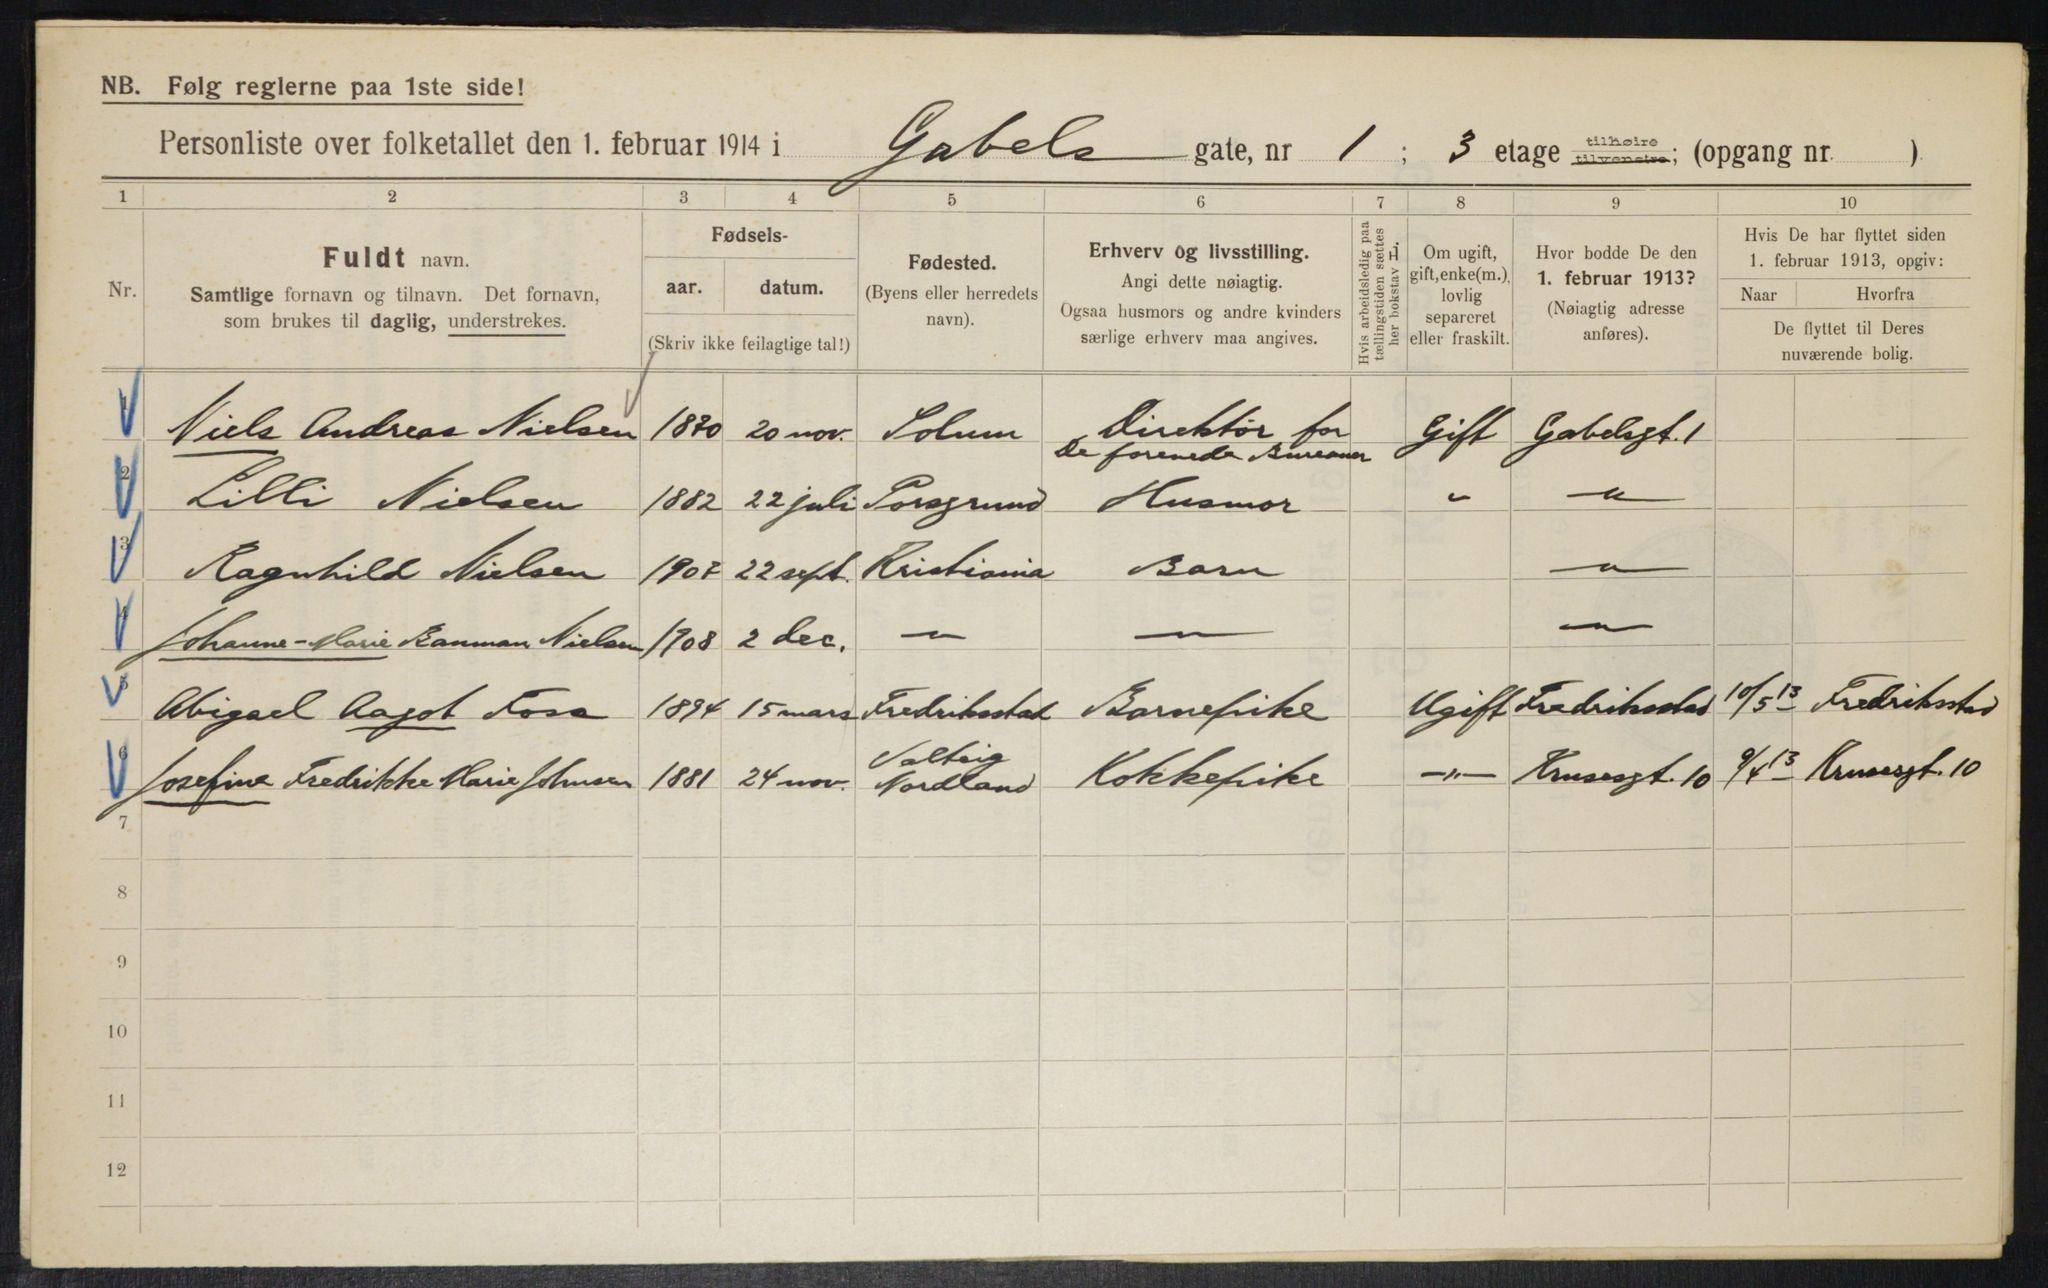 NB. Følg reglerne paa 1ste side!
Personliste over folketallet den 1. februar 1914 i Gabels gate, nr 1 ; 3 etage tilhøire tilvenstre; (opgang nr. )
1 2 3 4 5 6 7 8 9 10
Nr.
Fuldt navn.
Samtlige fornavn og tilnavn. Det fornavn,
som brukes til daglig, understrekes.
Fødsels-
aar. datum.
(Skriv ikke feilagtige tal!)
Fødested.
(Byens eller herredets
navn).
Erhverv og livsstilling.
Angi dette nøiagtig.
Ogsaa husmors og andre kvinders
særlige erhverv maa angives.
Hvis arbeidsledig paa
tællingstiden sættes
her bokstav L.
Om ugift,
gift, enke(m.),
lovlig
separeret
eller fraskilt.
Hvor bodde De den
1. februar 1913?
(Nøiagtig adresse
anføres).
Hvis De har flyttet siden
1. februar 1913, opgiv:
Naar Hvorfra
De flyttet til Deres
nuværende bolig.
1 Niels Andreas Nielsen 1870 20 nov. Solum Direktør for De forenede Bureauer Gift Gabelsgt. 1
2 Lilli Nielsen 1882 22 juli Porsgrund Husmor " —"—
3 Ragnhild Nielsen 1907 22 sept. Kristiania Barn —"—
4 Johanne-Marie Bauman Nielsen 1908 2 dec. —"— —"— —"—
5 Abigael Aagot Foss 1894 15 mars Fredriksstad Barnepike Ugift Fredriksstad 10/5 13 Fredriksstad
6 Josefine Fredrikke Marie Johnsen 1881 24 nov. Nordland Kokkepike —"— Krusesgt. 10 9/4 13 Krusesgt. 10
7
8
9
10
11
12